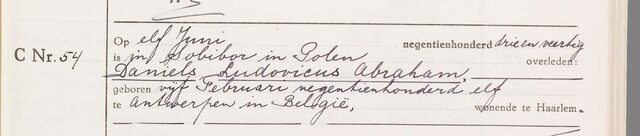 C Nr. 54
Op elf Juni negentienhonderd drie en veertig
is in Sobibor in Polen overleden:
Daniëls Ludovicus Abraham,
geboren vijf Februari negentienhonderd elf
te Antwerpen in België, wonende te Haarlem.